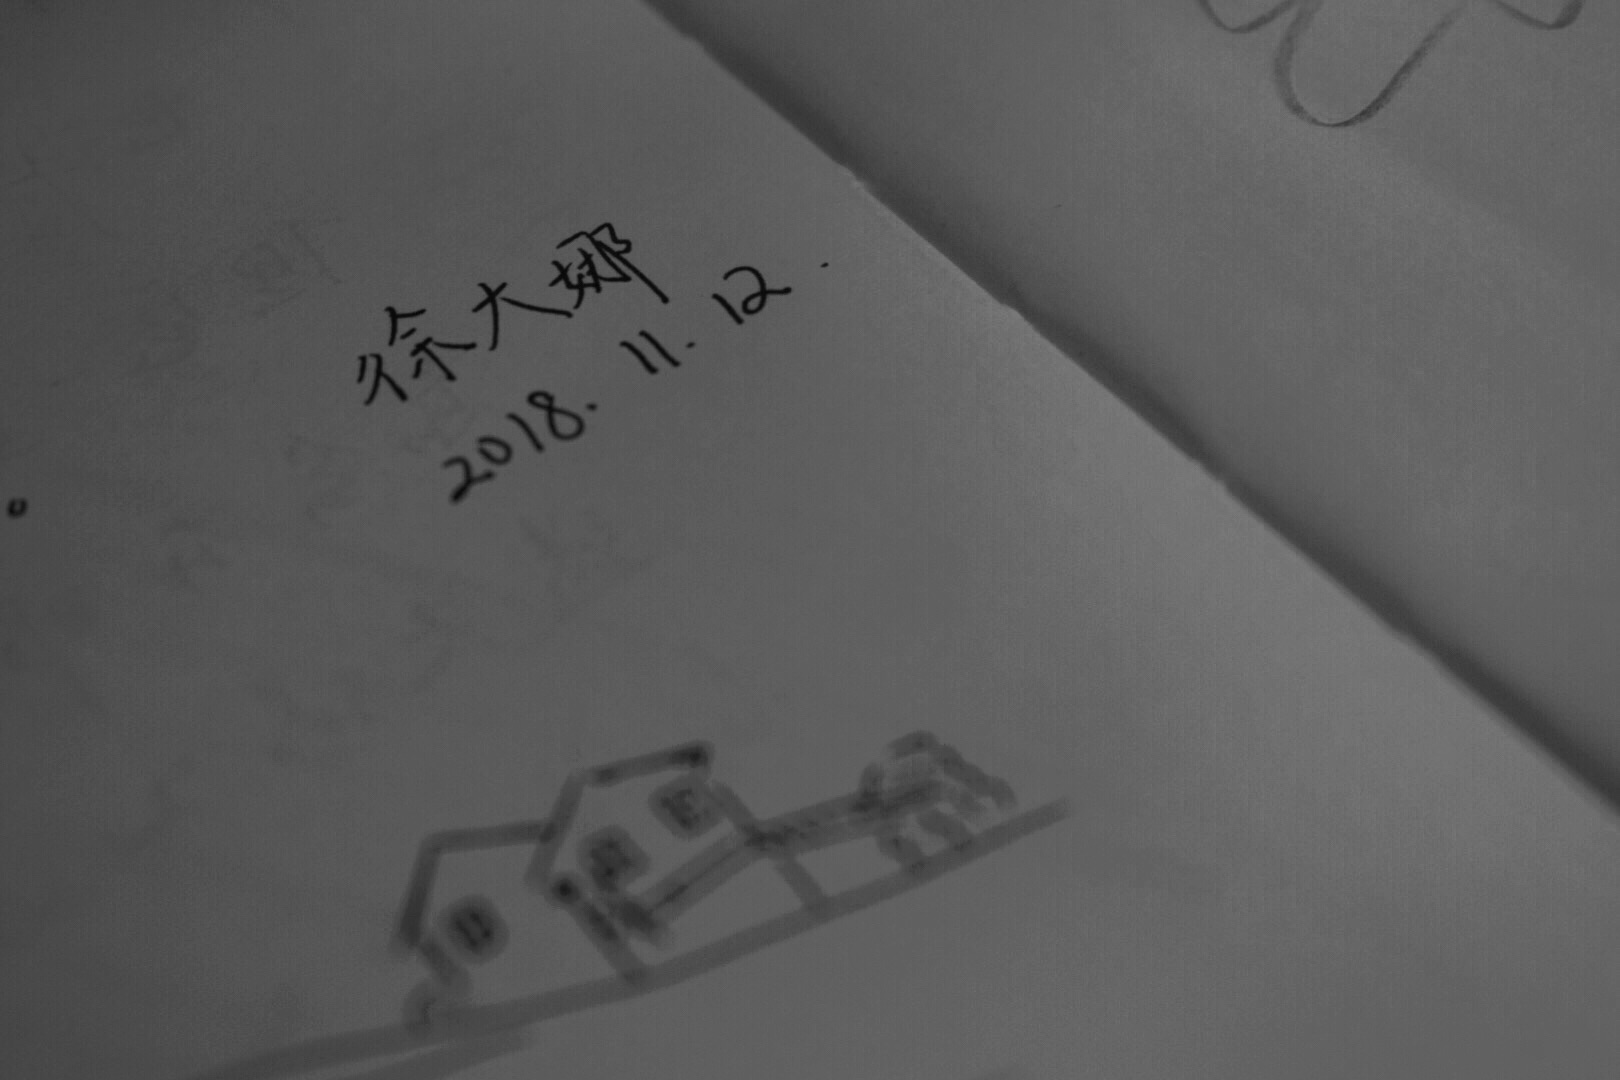 徐大娜
2018. 11. 12.